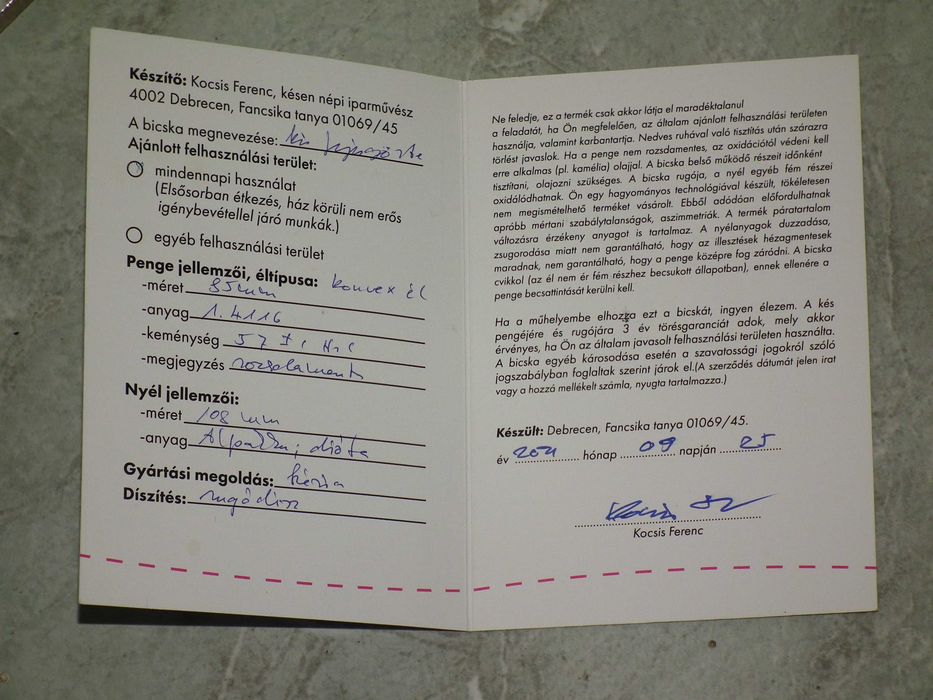 Készítő: Kocsis Ferenc, késen népi iparművész
4002 Debrecen, Fancsika tanya 01069/45
A bicska megnevezése: kis
Ajánlott felhasználási terület:
mindennapi használat
(Elsősorban étkezés, ház körüli nem erős
igénybevétellel járó munkák.)
egyéb felhasználási terület
Penge jellemzői, éltípusa: konvex él
-méret 85 mm
-anyag 1.4116
-keménység 57 HRC
-megjegyzés rozsdamentes
Nyél jellemzői:
-méret 108 mm
-anyag Alpakka; diófa
Gyártási megoldás: kézia
Díszítés: rugódísz
Ne feledje, ez a termék csak akkor látja el maradéktalanul
a feladatát, ha Ön megfelelően, az általam ajánlott felhasználási területen
használja, valamint karbantartja. Nedves ruhával való tisztítás után szárazra
törlést javaslok. Ha a penge nem rozsdamentes, az oxidációtól védeni kell
erre alkalmas (pl. kamélia) olajjal. A bicska belső működő részeit időnként
tisztítani, olajozni szükséges. A bicska rugója, a nyél egyéb fém részei
oxidálódhatnak. Ön egy hagyományos technológiával készült, tökéletesen
nem megismételhető terméket vásárolt. Ebből adódóan előfordulhatnak
apróbb mértani szabálytalanságok, aszimmetriák. A termék páratartalom
változásra érzékeny anyagot is tartalmaz. A nyélanyagok duzzadása,
zsugorodása miatt nem garantálható, hogy az illesztések hézagmentesek
maradnak, nem garantálható, hogy a penge középre fog záródni. A bicska
cvikkol (az él nem ér fém részhez becsukott állapotban), ennek ellenére a
penge becsattintását kerülni kell.
Ha a műhelyembe elhozza ezt a bicskát, ingyen élezem. A kés
pengéjére és rugójára 3 év törésgaranciát adok, mely akkor
érvényes, ha Ön az általam javasolt felhasználási területen használta.
A bicska egyéb károsodása esetén a szavatossági jogokról szóló
jogszabályban foglaltak szerint járok el.(A szerződés dátumát jelen irat
vagy a hozzá mellékelt számla, nyugta tartalmazza.)
Készült: Debrecen, Fancsika tanya 01069/45.
év 2011 hónap 09 napján 25
Kocsis
Kocsis Ferenc